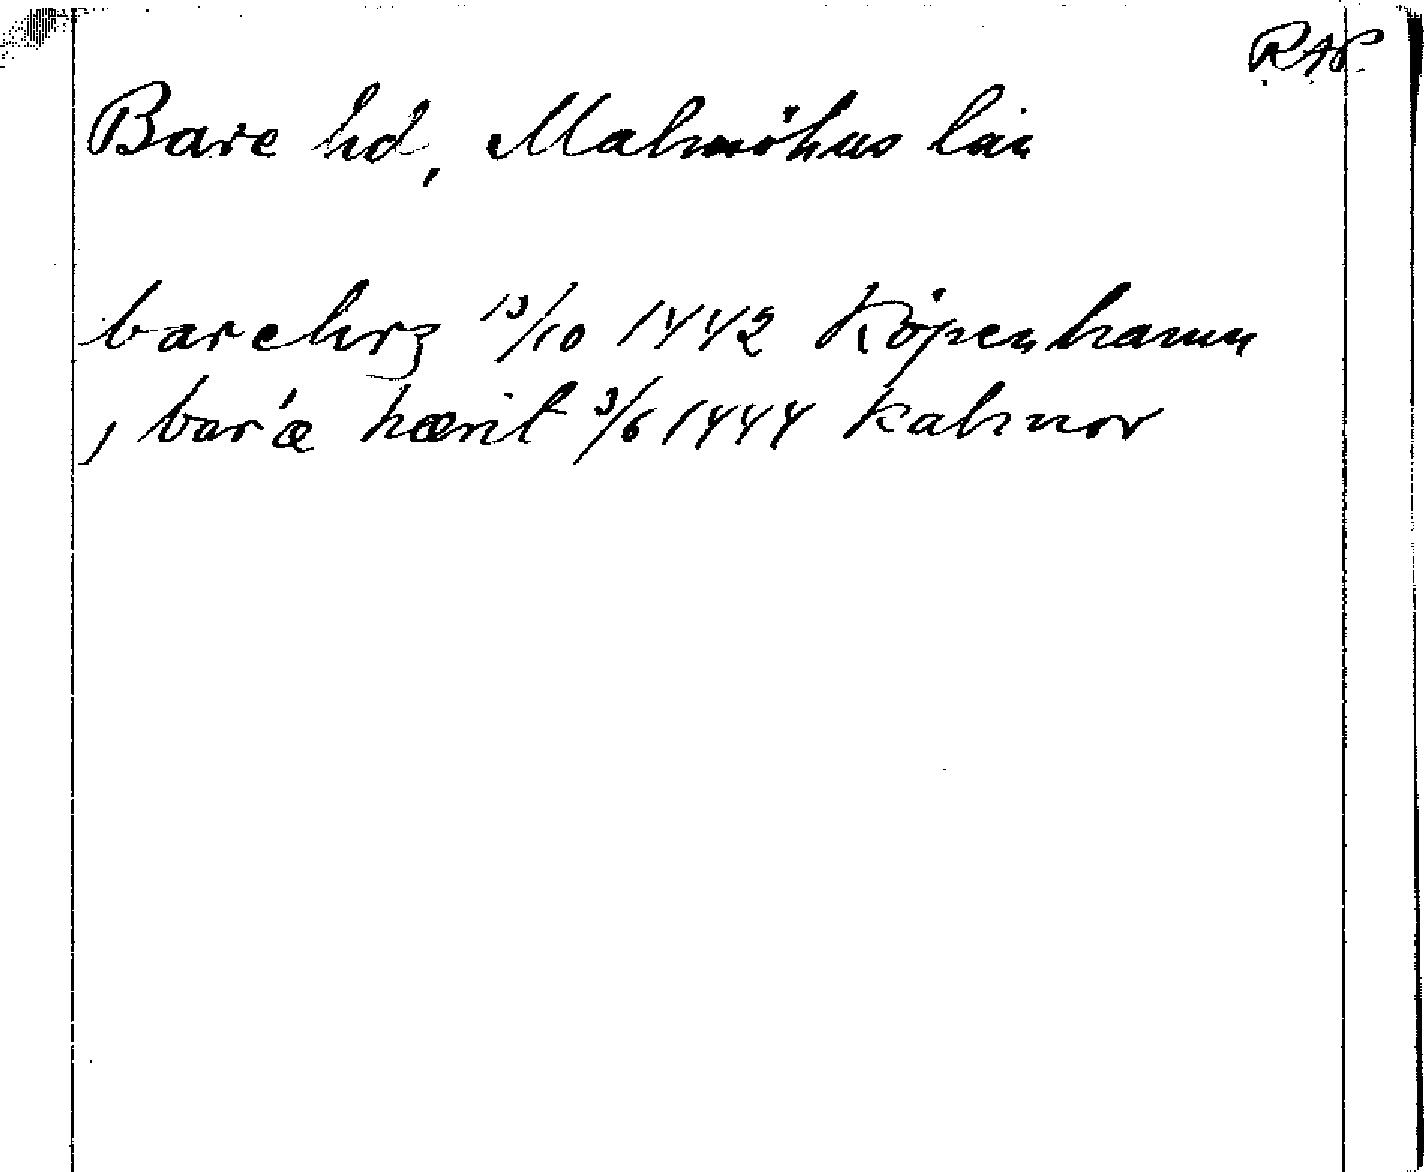 RAP.
Bare hd, Malmöhus län
barehrz 13/10 1442 Köpenhamn
, bar'æ hærit 3/6 1444 Kalmar